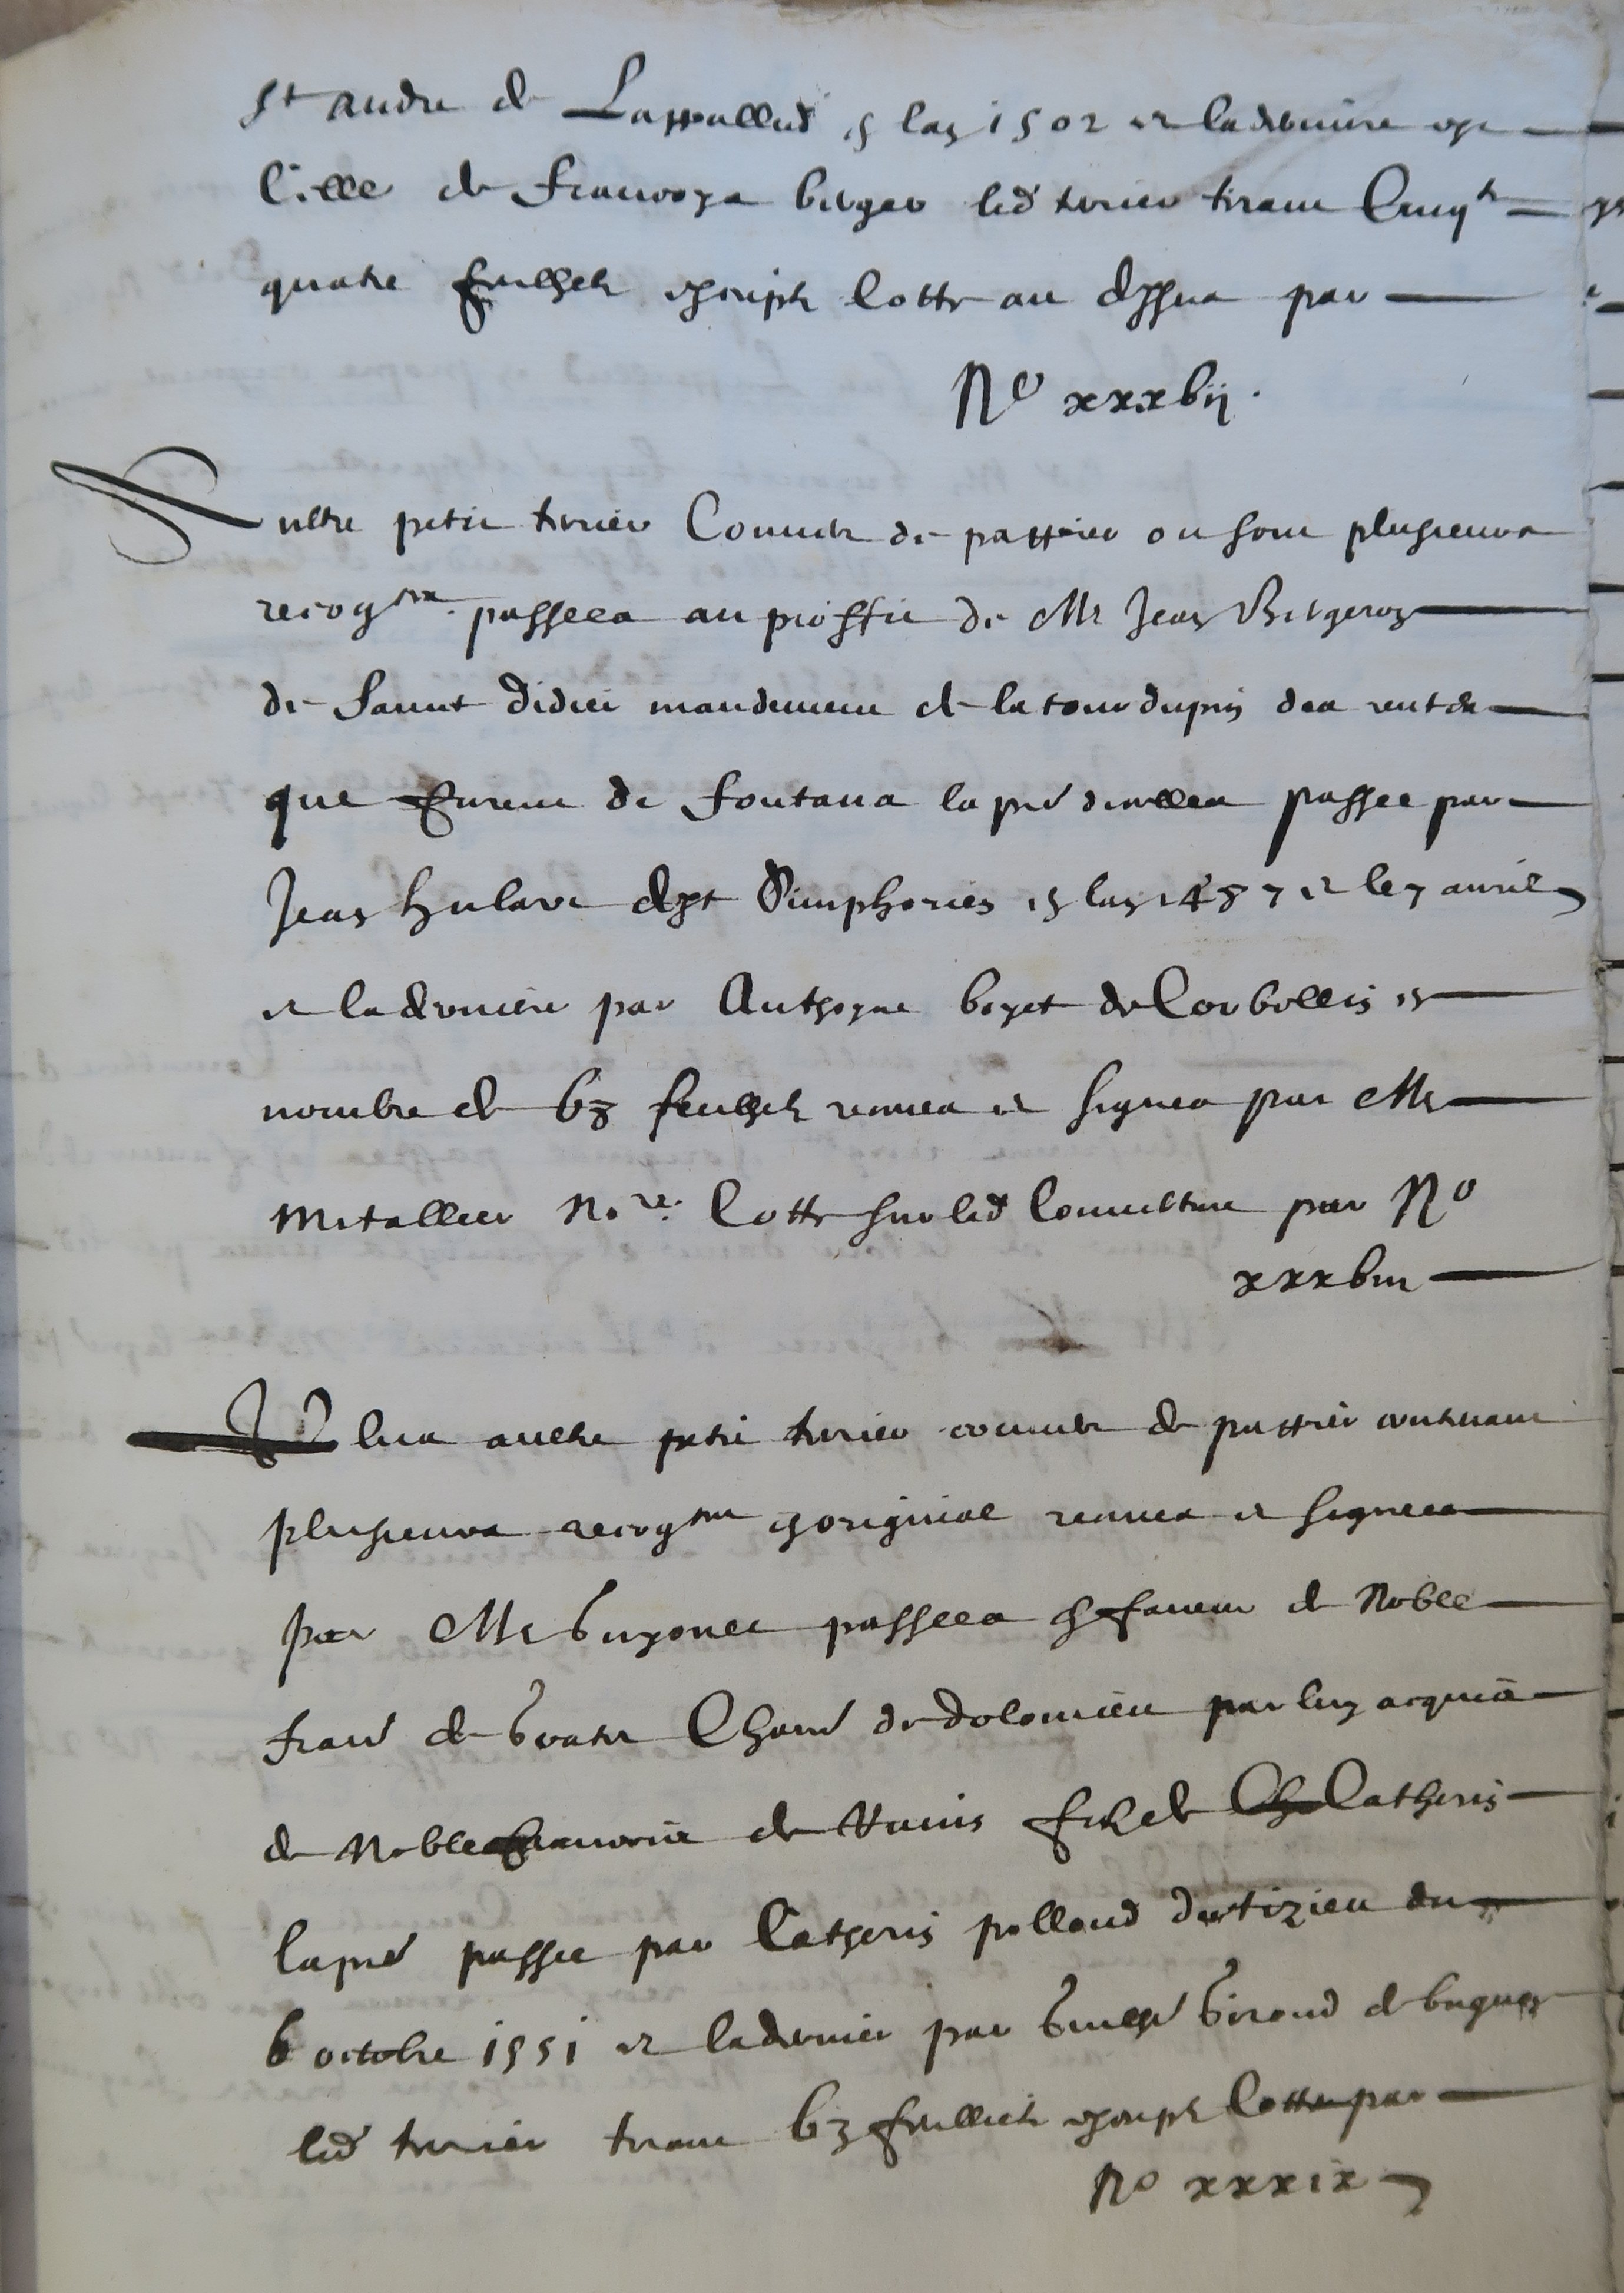 St andre de Lappallud en lan 1502 et la derniere est
Celle de francoys berger led terrier tenant Cinq te
quatre feulhetz escripts Cotte au dessus par
No xxxbij.
Aultre petit terrier Couvert de pattier ou sont plusieurs
recog ons passees au proffit de Me Jean Bergeron
de Sainct didier mandement de la tour du pin des rentes
que furent de fontana la pre passee par
Jean de st Simphorien en lan 1487 et le 7 avril
et la derniere par Anthoyne boyet de Corbellin en
nombre de 63 feulhetz remies et signes par Me
Metallier No re Cotte sur led Couverture par No
xxxbiii
Plus aultre petit terrier couvert de pattier contenant
plusieurs recog ons en original remies et signees
par Me Guyonet passees en faveur de Noble
de Dolomieu par luy acquis
de Noble francois de filz de Catherin
la pre passee par Catherin polloud du
6 octobre 1551 et la dernier par Giroud de
led terrier tenant 63 feullietz escripts Cotte par
No xxxix